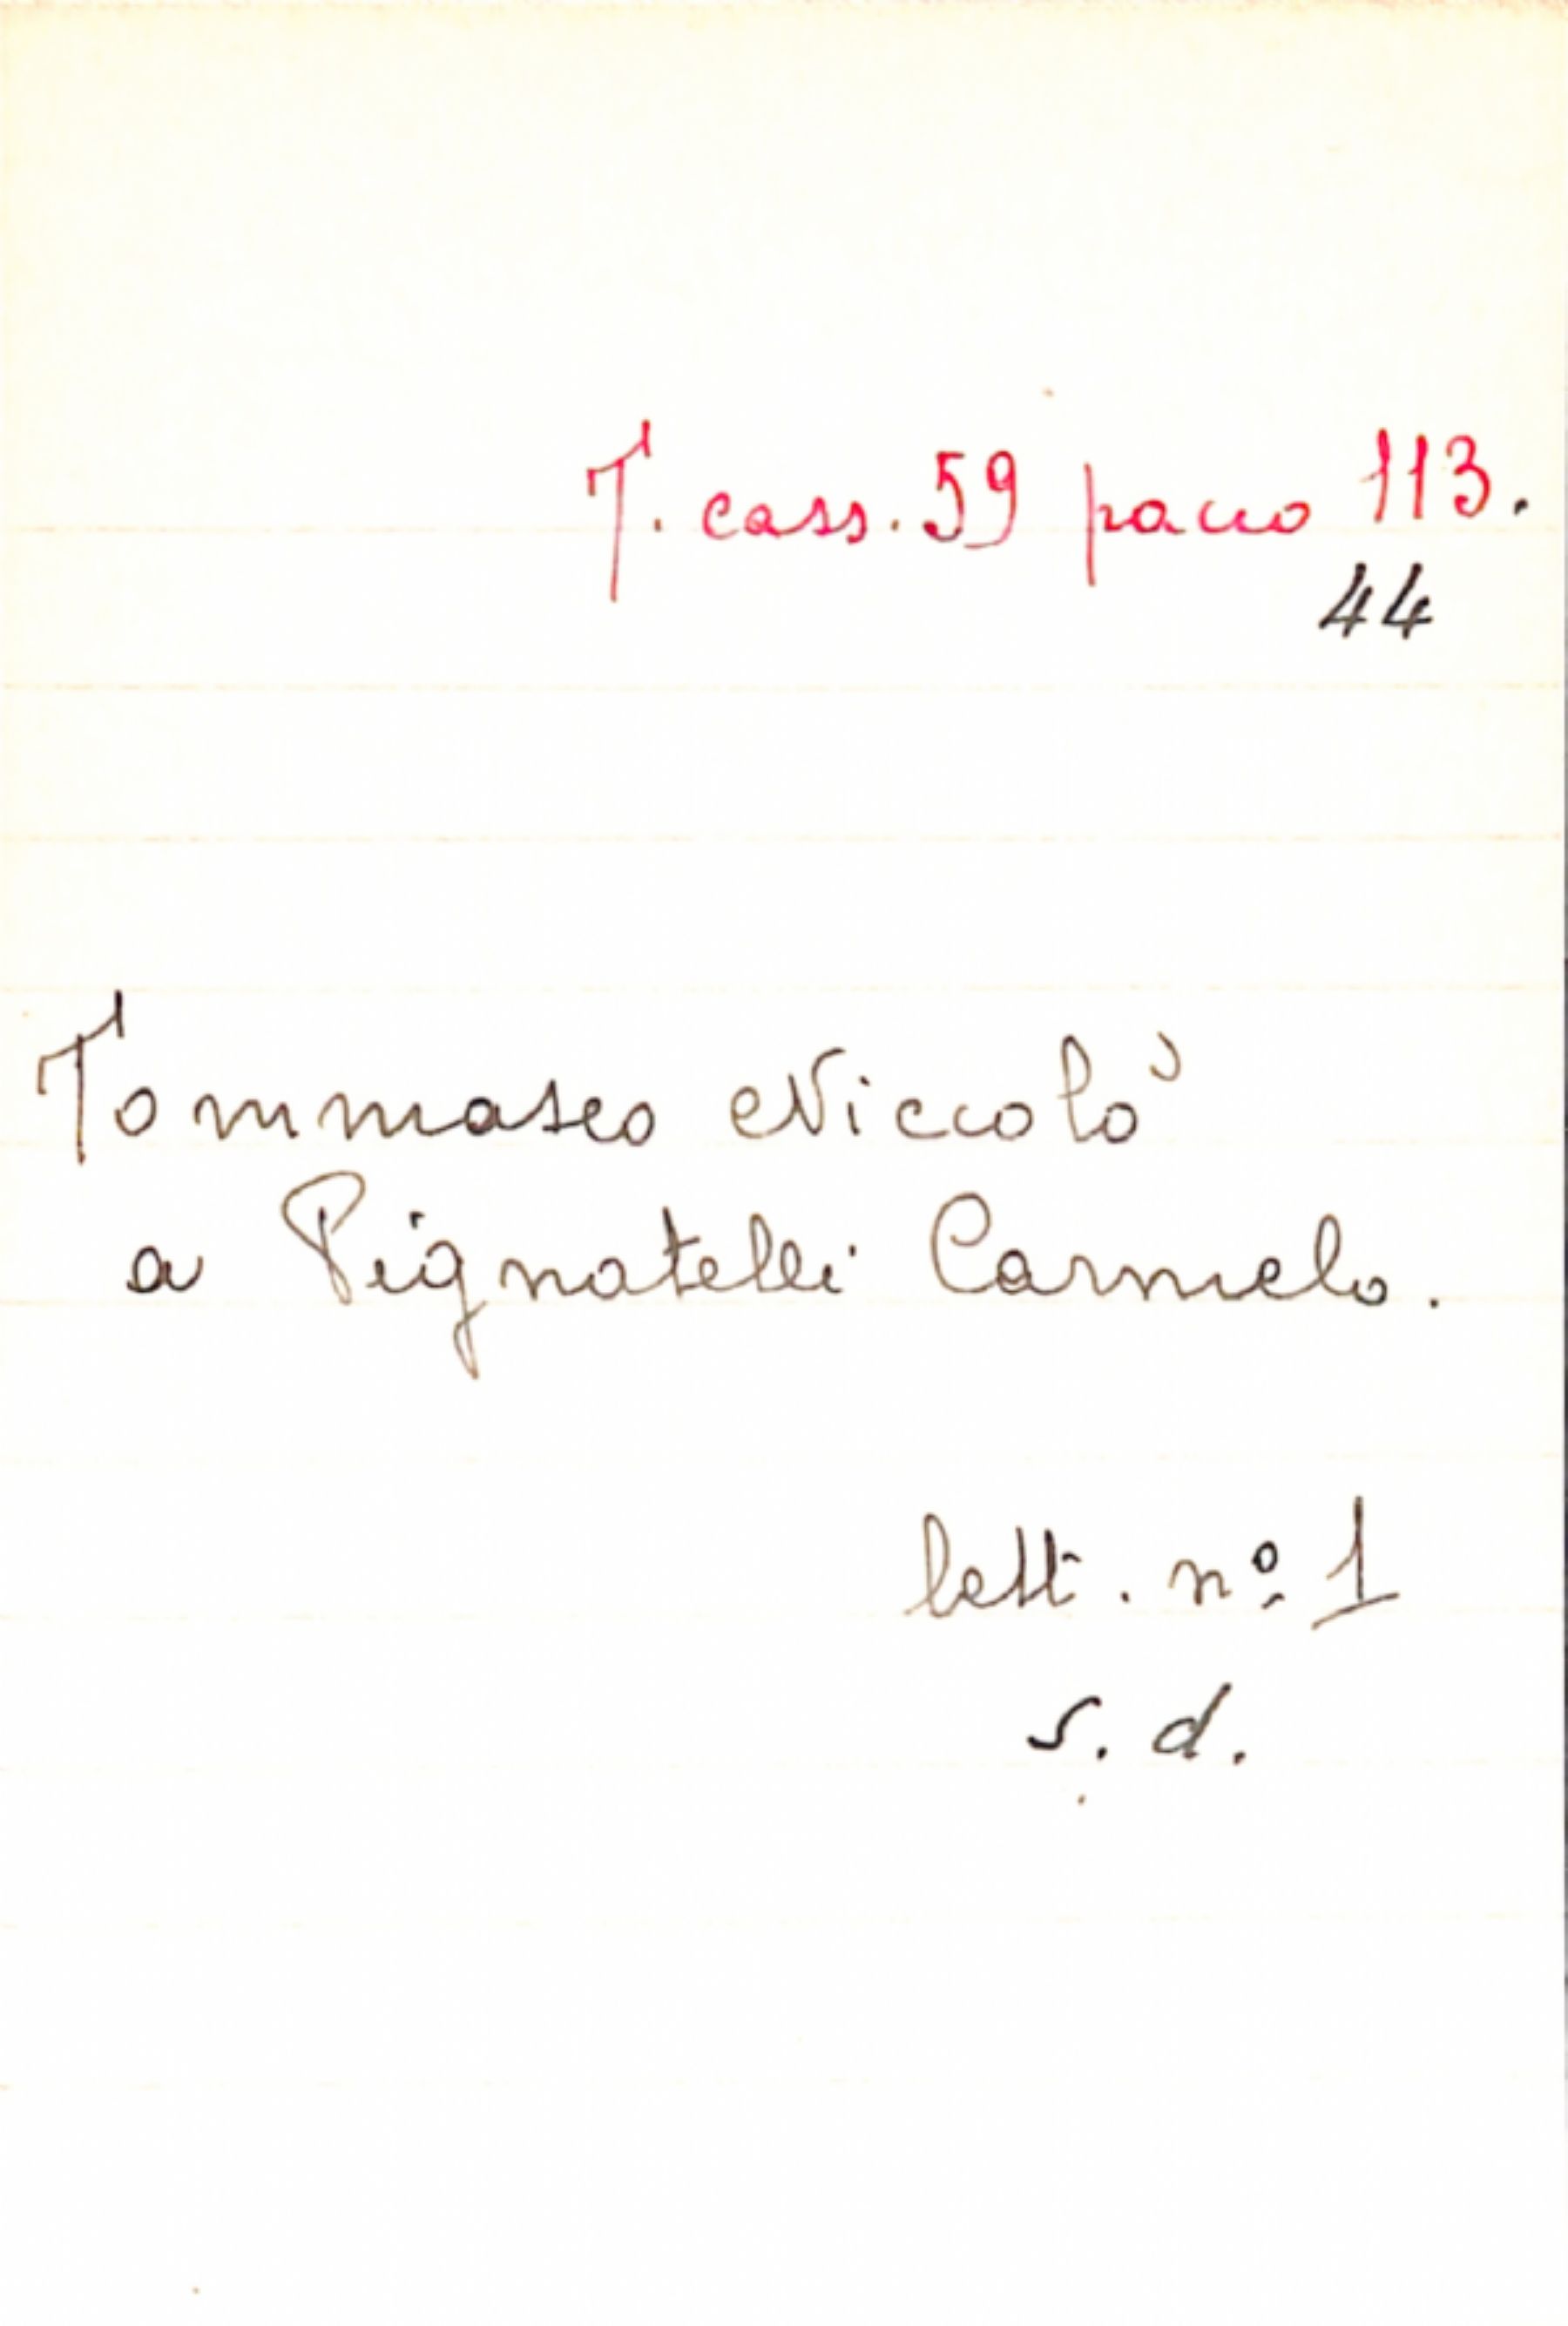 T. cass. 59 pacco 113.
44
Tommaseo Niccolò
a Pignatelli Carmelo.
lett. nº 1
s. d.